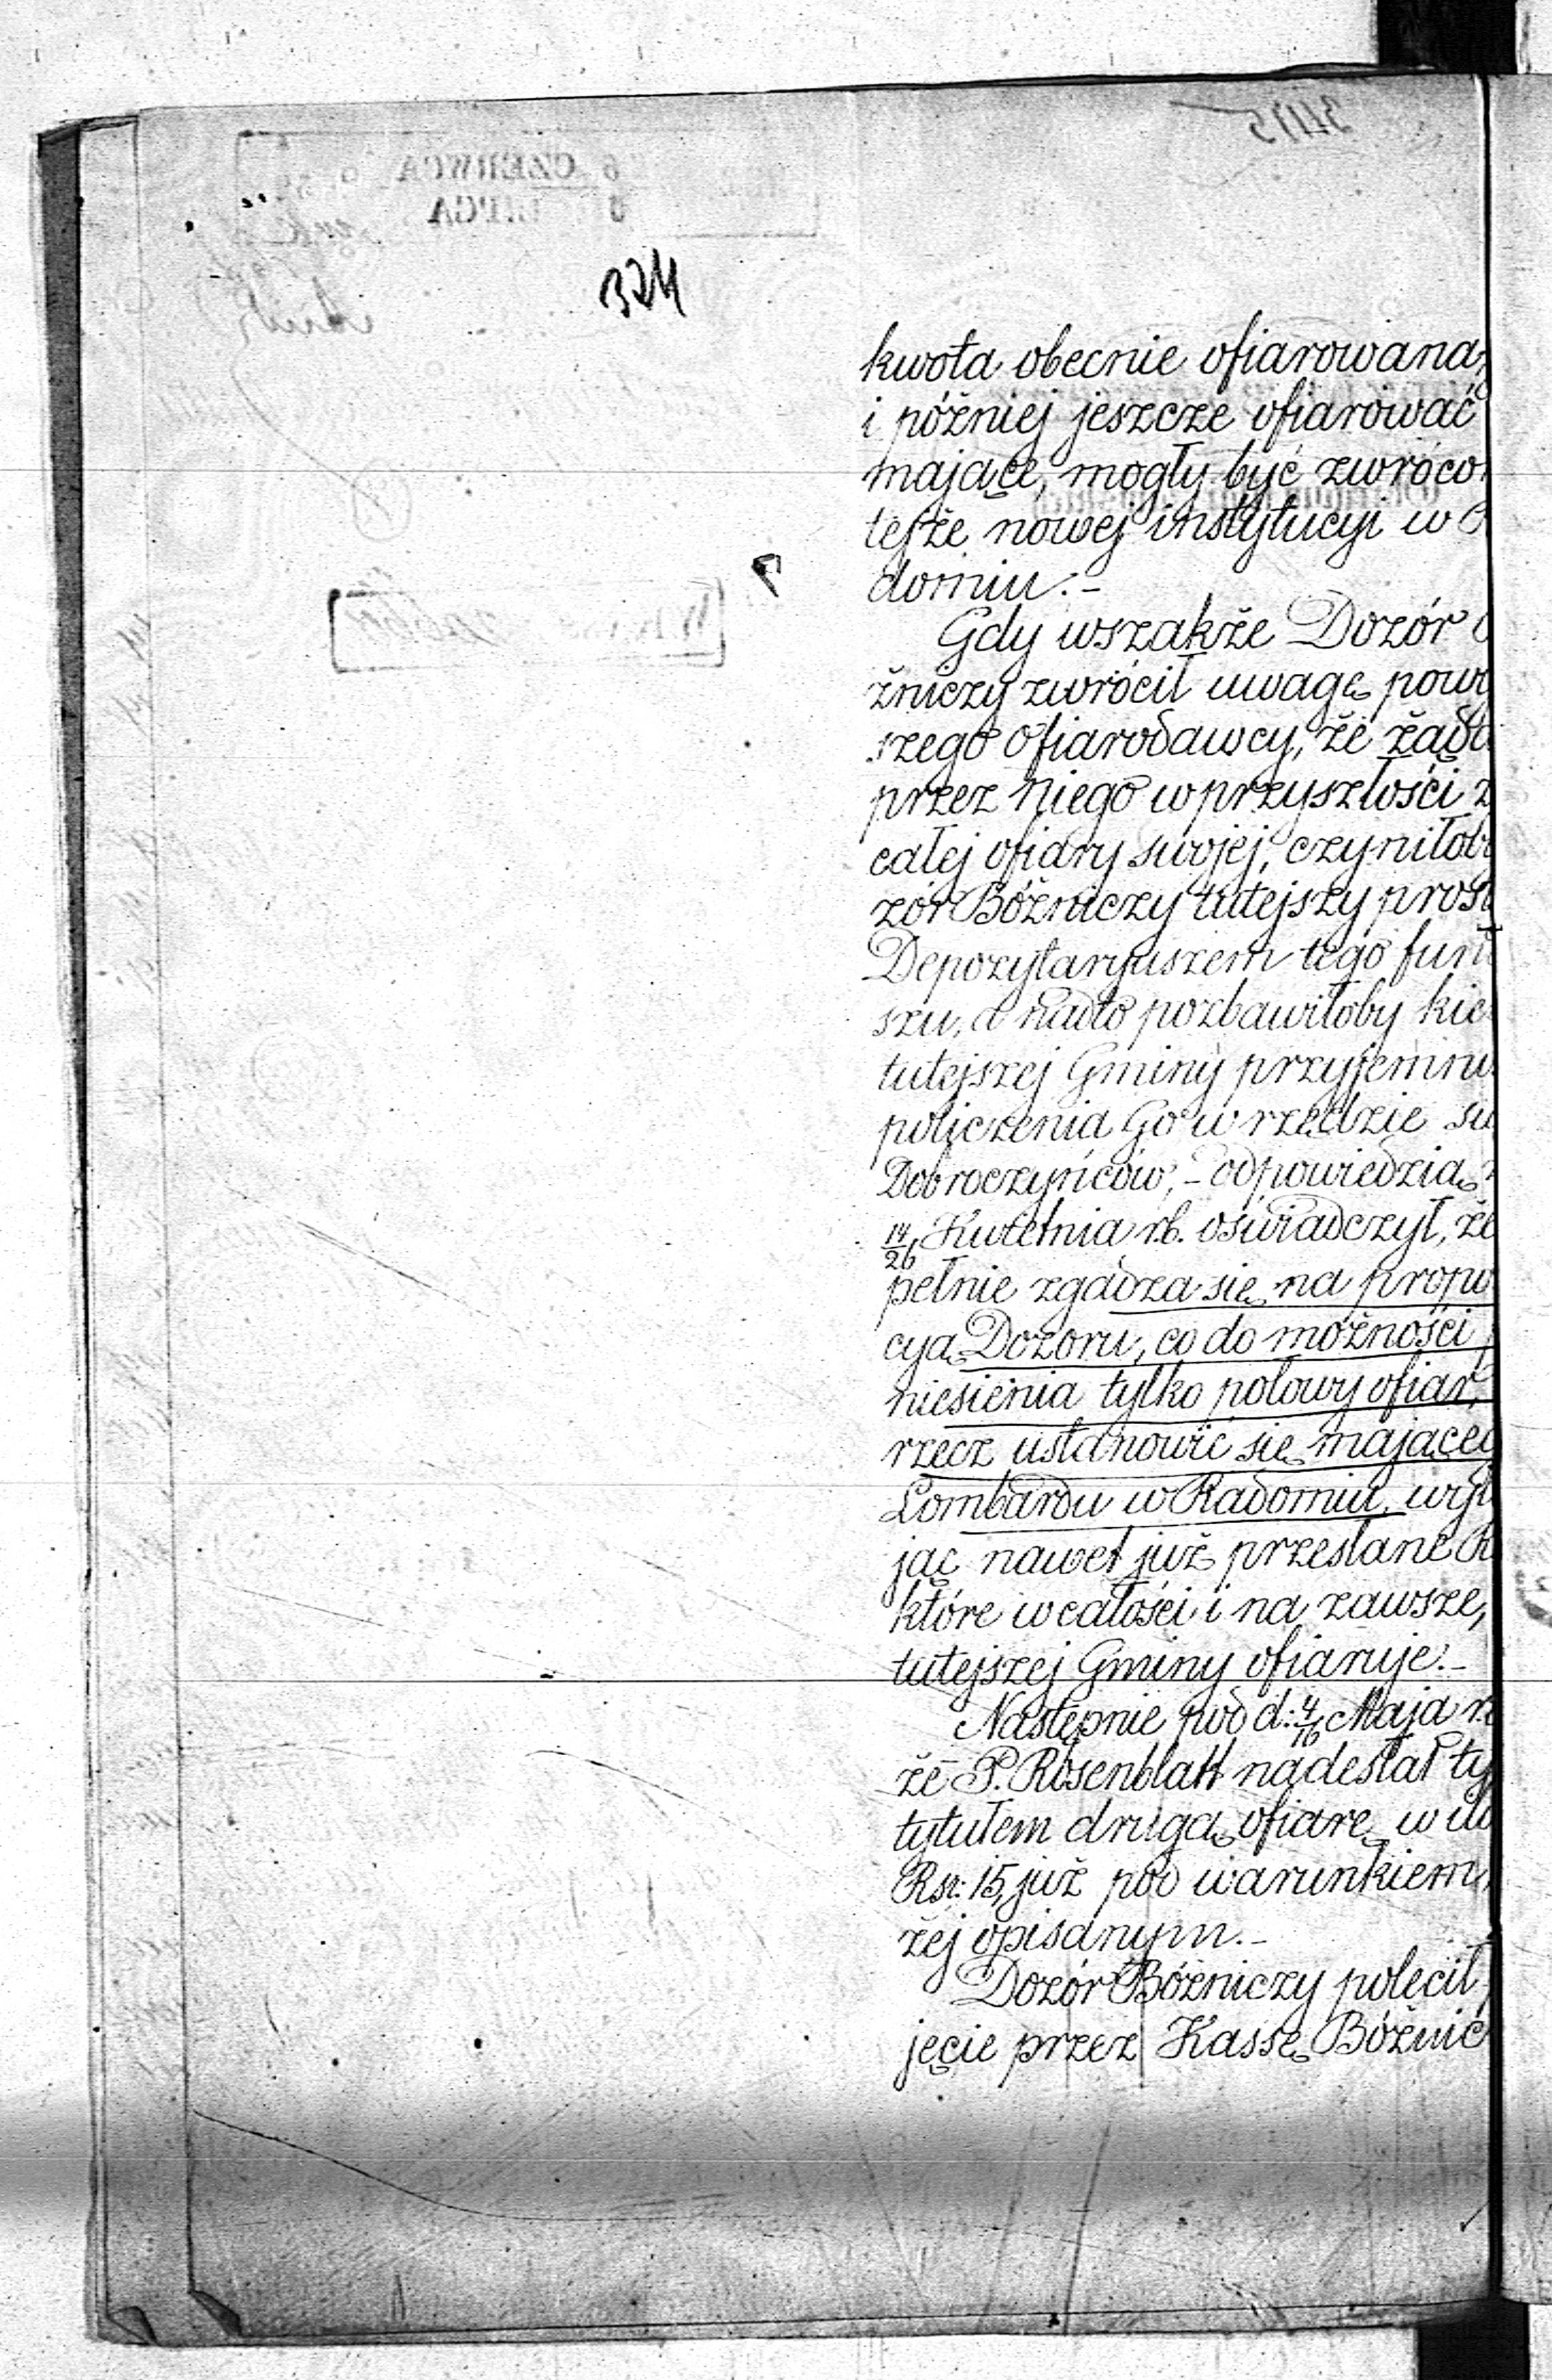 324
kwota obecnie ofiarowana,
i później jeszcze ofiarować
mające, mogły być zwróco
tejże nowej instytucyi w
domiu.-
Gdy wszakże Dozór
żniczy zwrócił uwagę pow
szego ofiarodawcy, że żąda
przez niego w przyszłości z
całej ofiary swojej, czyniłob
zór Bóżniczy tutejszy prost
Depozytaryuszem tego fun
szu, a nadto pozbawiłoby kie
tutejszej Gminy przyjemno
policzenia Go w rzędzie su
Dobroczyńców, - odpowiedzią
14/26 Kwietnia r.b. oświadczył, że
pełnie zgadza się na propo
cyą Dozoru, co do możności
niesienia tylko połowy ofiar,
rzecz ustanowić się mającej
Lombardu w Radomiu, wył
jąc nawet już przesłane R
które w całości i na zawsze,
tutejszej Gminy ofiaruje.-
Następnie pod d: 4/16 Maja r.
że P. Rosenblatt nadesłał ty
tytułem drugą ofiarę w ilo
Rsr: 15, już pod warunkiem,
żej opisanym.-
Dozór Bóżniczy polecił
jęcie przez Kassę Bóżnic